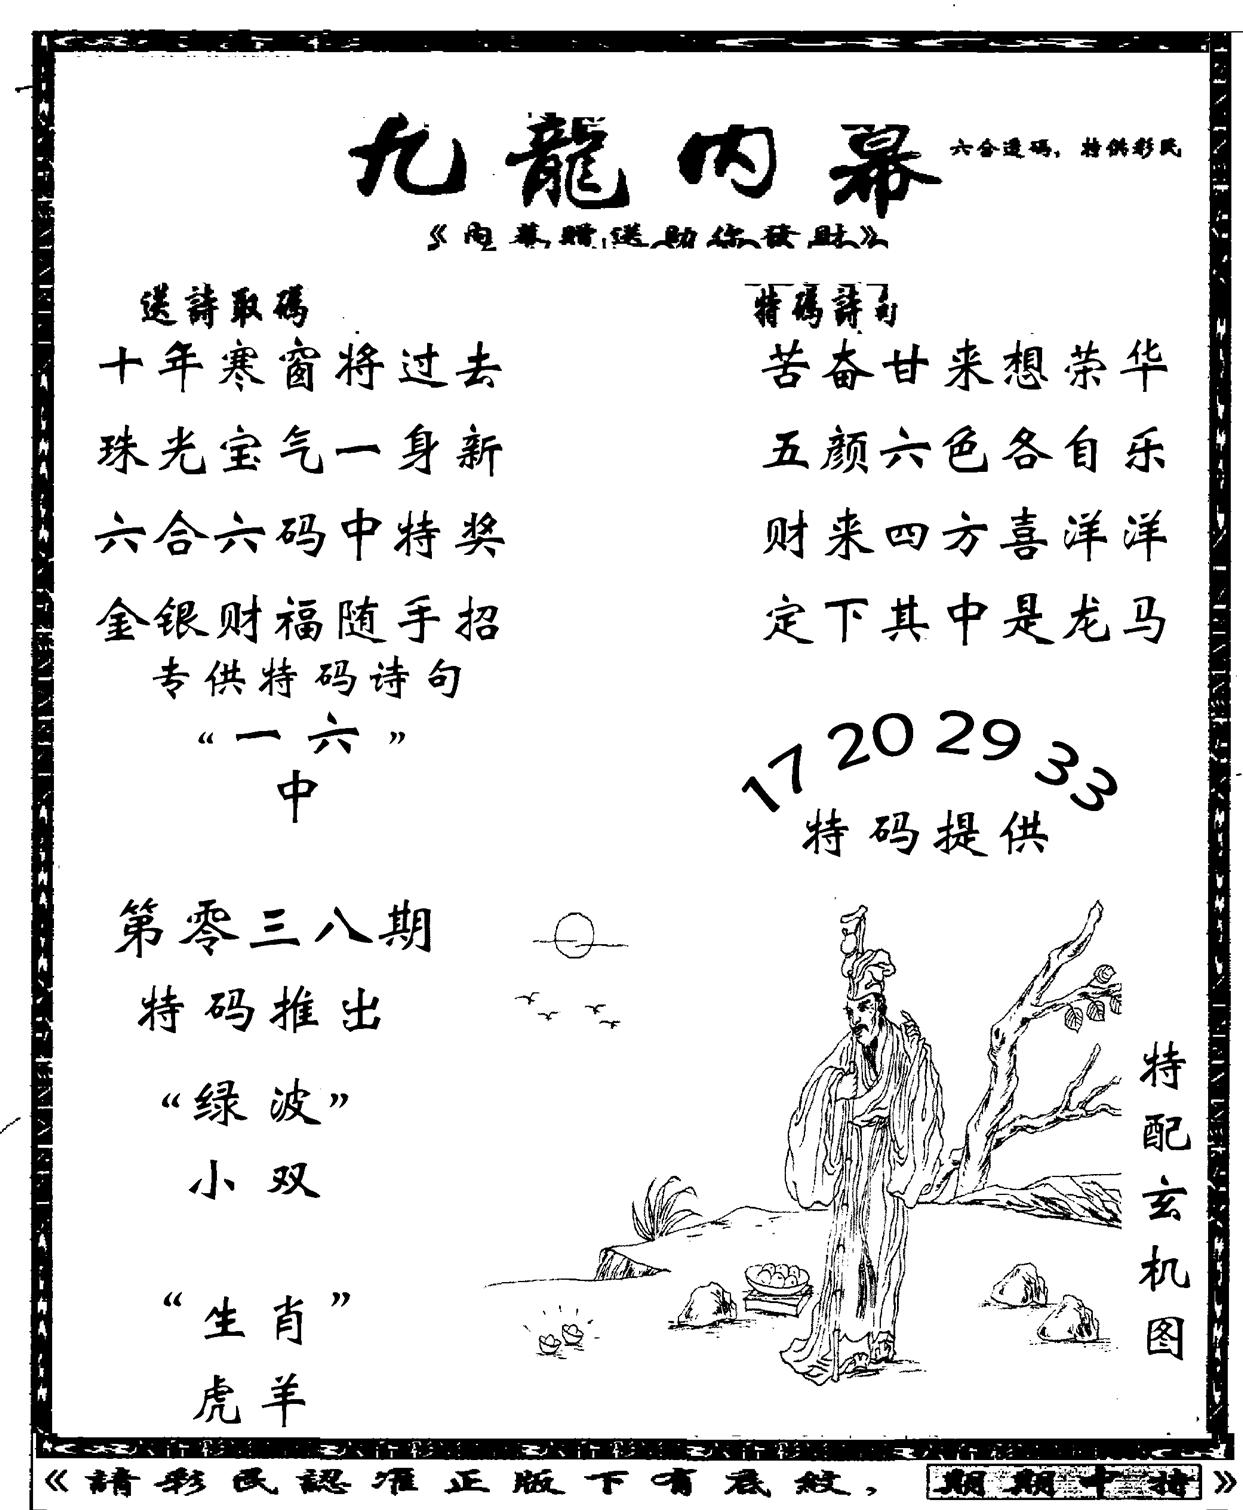 九龍内幕
六合透码，特供彩民
《内幕赠送助你發財》
送詩取碼
十年寒窗将过去
珠光宝气一身新
六合六码中特奖
金银财福随手招
专供特码诗句
“一六”
中
特碼詩句
苦奋甘来想荣华
五颜六色各自乐
财来四方喜洋洋
定下其中是龙马
17 20 29 33
特码提供
第零三八期
特码推出
“绿波”
小双
“生肖”
虎羊
特配玄机图
《請彩民認准正版下有底紋，期期中特》